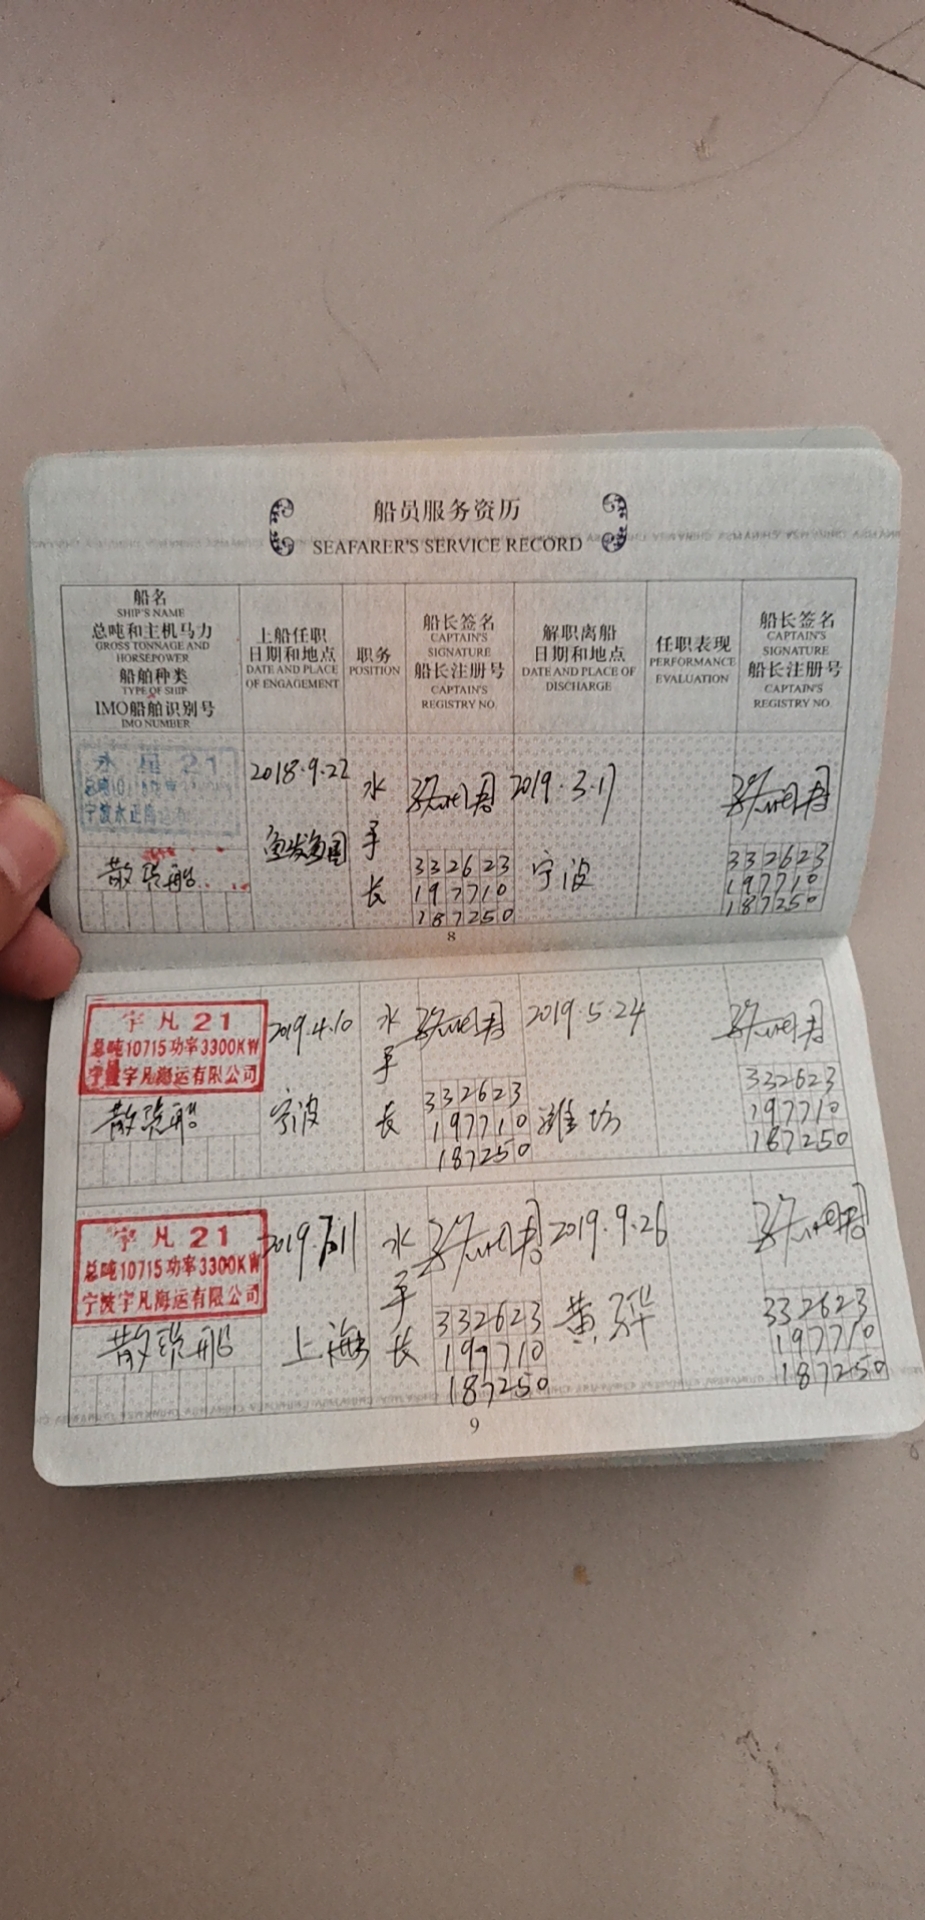 船员服务资历
SEAFARER'S SERVICE RECORD
船名
SHIP'S NAME
总吨和主机马力
GROSS TONNAGE AND
HORSEPOWER
船舶种类
TYPE OF SHIP
IMO船舶识别号
IMO NUMBER
上船任职
日期和地点
DATE AND PLACE
OF ENGAGEMENT
职务
POSITION
船长签名
CAPTAIN'S
SIGNATURE
船长注册号
CAPTAIN'S
REGISTRY NO.
解职离船
日期和地点
DATE AND PLACE OF
DISCHARGE
任职表现
PERFORMANCE
EVALUATION
船长签名
CAPTAIN'S
SIGNATURE
船长注册号
CAPTAIN'S
REGISTRY NO.
21
散货船
2018.9.22
水
手
长
332623
197710
187250
2019.3.17
宁波
332623
197710
187250
8
宇凡21
总吨10715功率3300KW
宁波宇凡海运有限公司
散货船
2019.4.10
宁波
水
手
长
332623
197710
187250
2019.5.24
潍坊
332623
197710
187250
宇凡21
总吨10715功率3300KW
宁波宇凡海运有限公司
散货船
上海
水
手
长
332623
197710
187250
2019.9.26
黄骅
332623
197710
187250
9